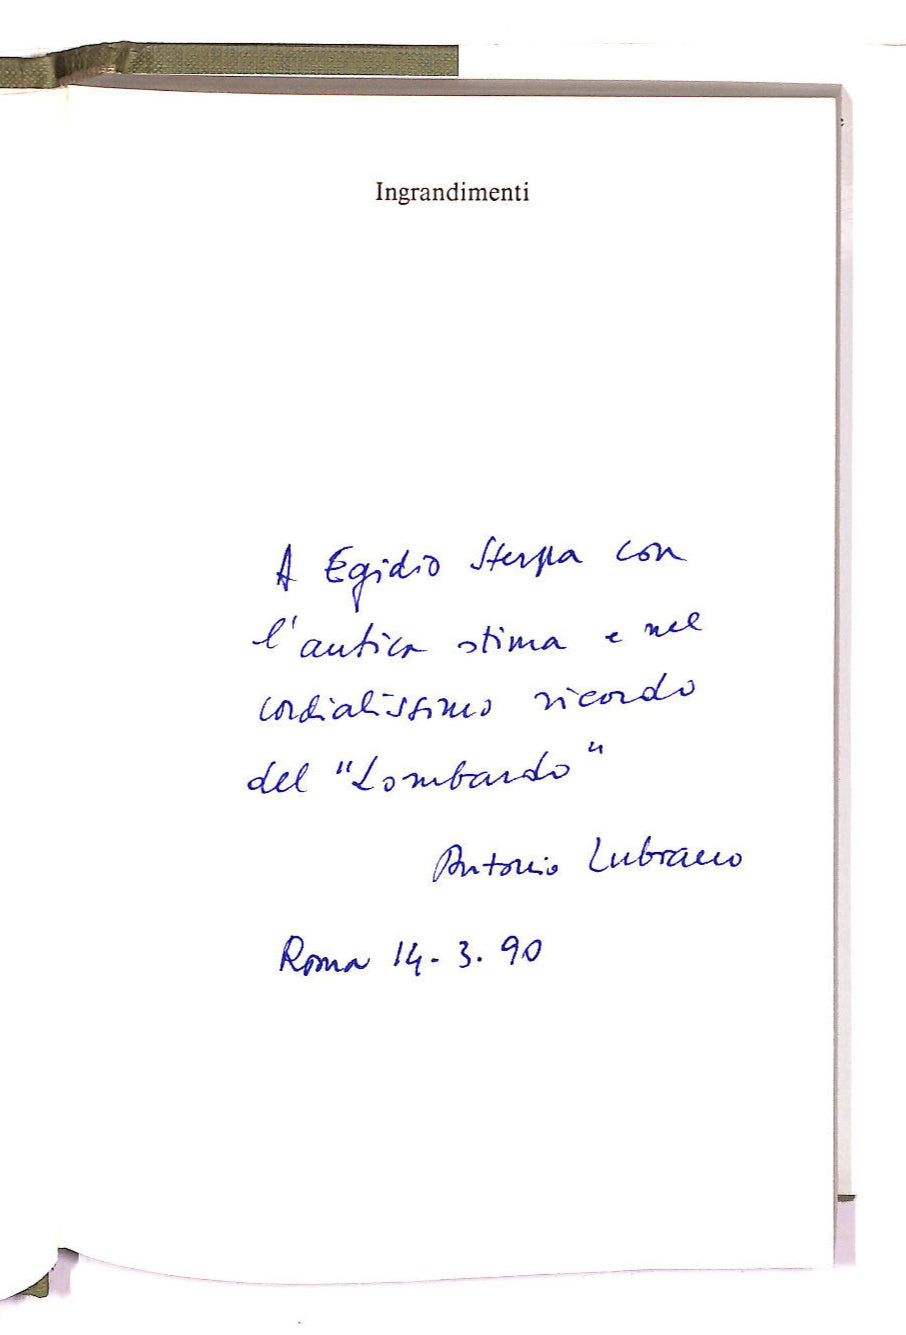 Ingrandimenti
A Egidio Sterpa con
l'antica stima e nel
cordialissimo ricordo
del "Lombardo"
Antonio Lubrano
Roma 14-3.90